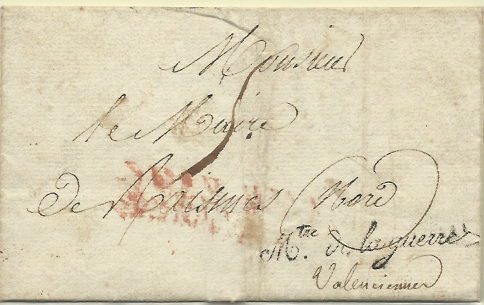 Monsieur
le Maire
De Raismes (Nord)
M.tre de la guerre
Valenciennes